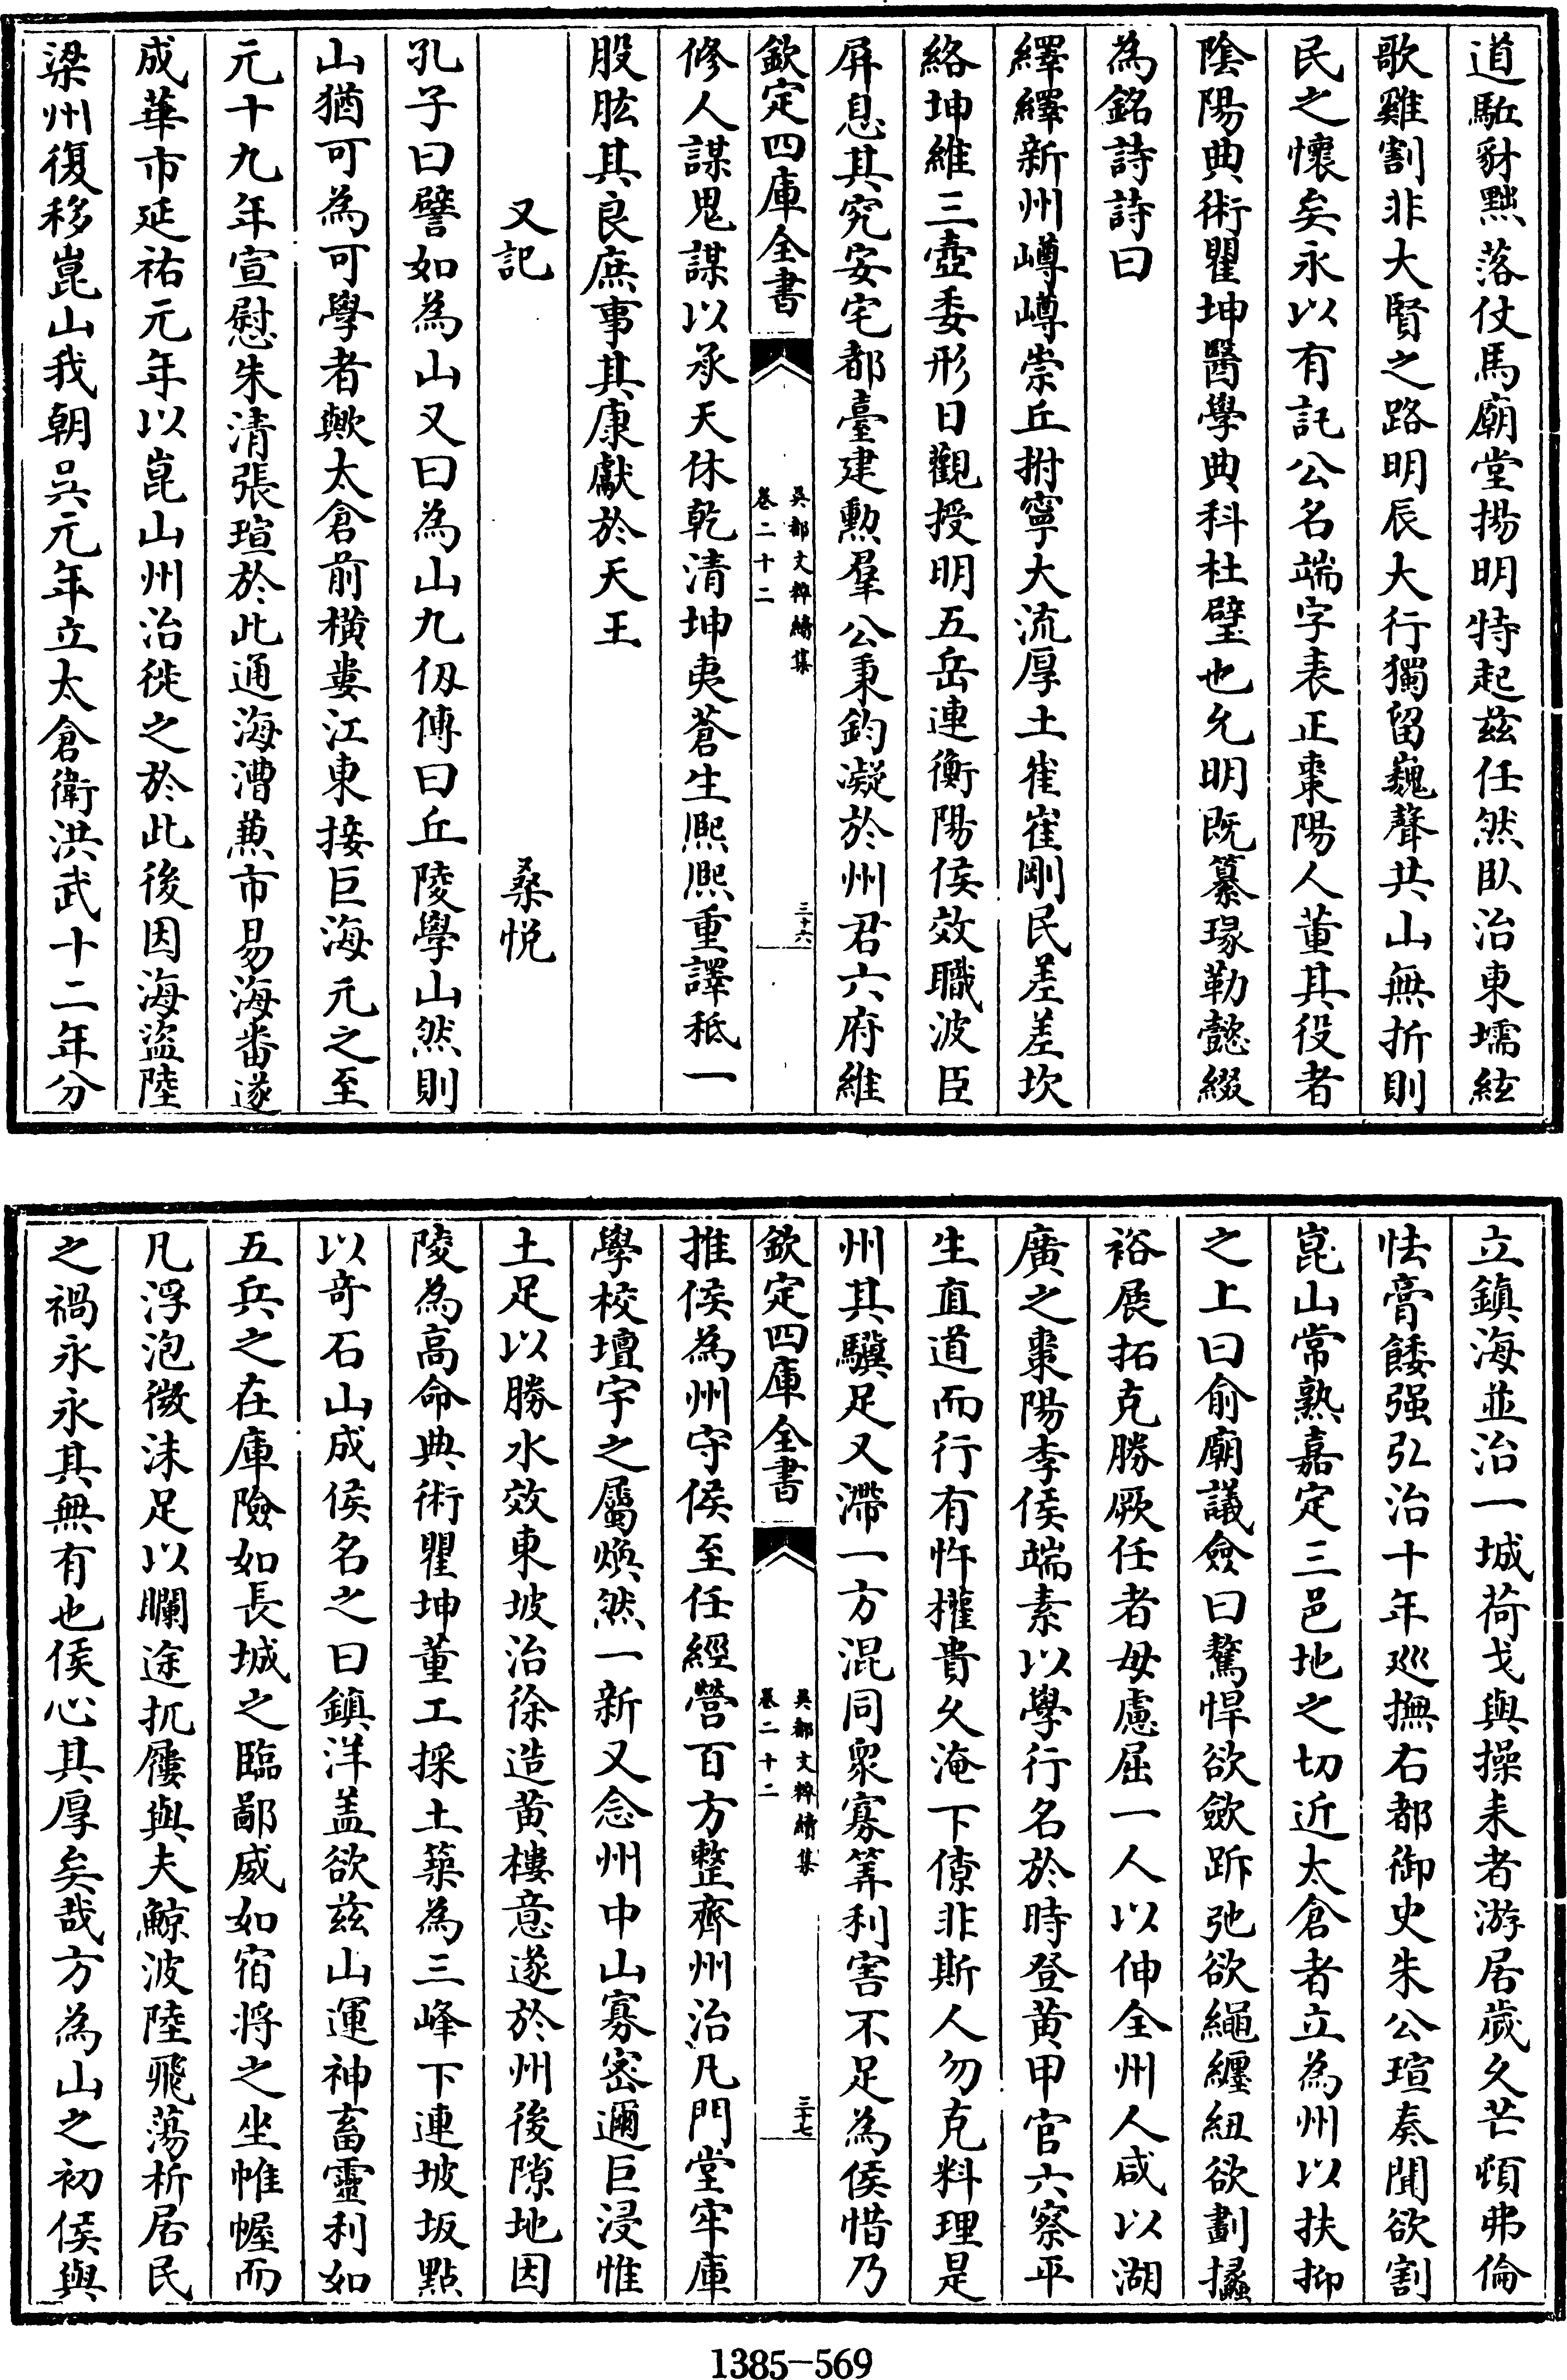 道駈豺黜落仗馬廟堂揚明特起茲任然臥治東壖絃
歌雞割非大賢之路明辰大行獨留巍聲共山無折則
民之懷矣永以有託公名端字表正棗陽人董其役者
陰陽典術瞿坤醫學典科杜璧也允明既纂瑑勒懿綴
為銘詩詩曰
繹繹新州嶟嶟崇丘拊寧大流厚土崔崔剛民差差坎
絡坤維三壺委形日觀授明五岳連衡陽侯效職波臣
屏息其究安宅都臺建勲羣公秉鈞凝於州君六府維
欽定四庫全書
吳都文粹續集
卷二十二
三十六
修人謀鬼謀以承天休乾清坤夷蒼生熈熈重譯秪一
股肱其良庶事其康獻於天王
又記
桑悅
孔子曰譬如為山又曰為山九仭傳曰丘陵學山然則
山猶可為可學者歟太倉前橫婁江東接巨海元之至
元十九年宣慰朱清張瑄於此通海漕兼市易海番遂
成華市延祐元年以崑山州治徙之於此後因海盜陸
梁州復移崑山我朝吳元年立太倉衛洪武十二年分
立鎮海並治一城荷戈與操耒者游居歲久芒頓弗倫
怯膏餧强弘治十年廵撫右都御史朱公瑄奏聞欲割
崑山常熟嘉定三邑地之切近太倉者立為州以扶抑
之上曰俞廟議僉曰驁悍欲歛跅弛欲繩纏紐欲劃攭
裕展拓克勝厥任者毋慮屈一人以伸全州人咸以湖
廣之棗陽李侯端素以學行名於時登黄甲官六察平
生直道而行有忤權貴久淹下僚非斯人勿克料理是
州其驥足又滯一方混同衆寡筭利害不足為侯惜乃
欽定四庫全書
吳都文粹續集
卷二十二
三十七
推侯為州守侯至任經營百方整齊州治凡門堂牢庫
學校壇宇之屬煥然一新又念州中山寡密邇巨浸惟
土足以勝水效東坡治徐造黄樓意遂於州後隙地因
陵為高命典術瞿坤董工採土築為三峰下連坡坂點
以竒石山成侯名之曰鎮洋盖欲茲山運神畜靈利如
五兵之在庫險如長城之臨鄙威如宿將之坐帷幄而
凡浮泡微沫足以瀾途扤屨與夫鯨波陸飛蕩析居民
之禍永永其無有也侯心其厚矣哉方為山之初侯與
1385-569